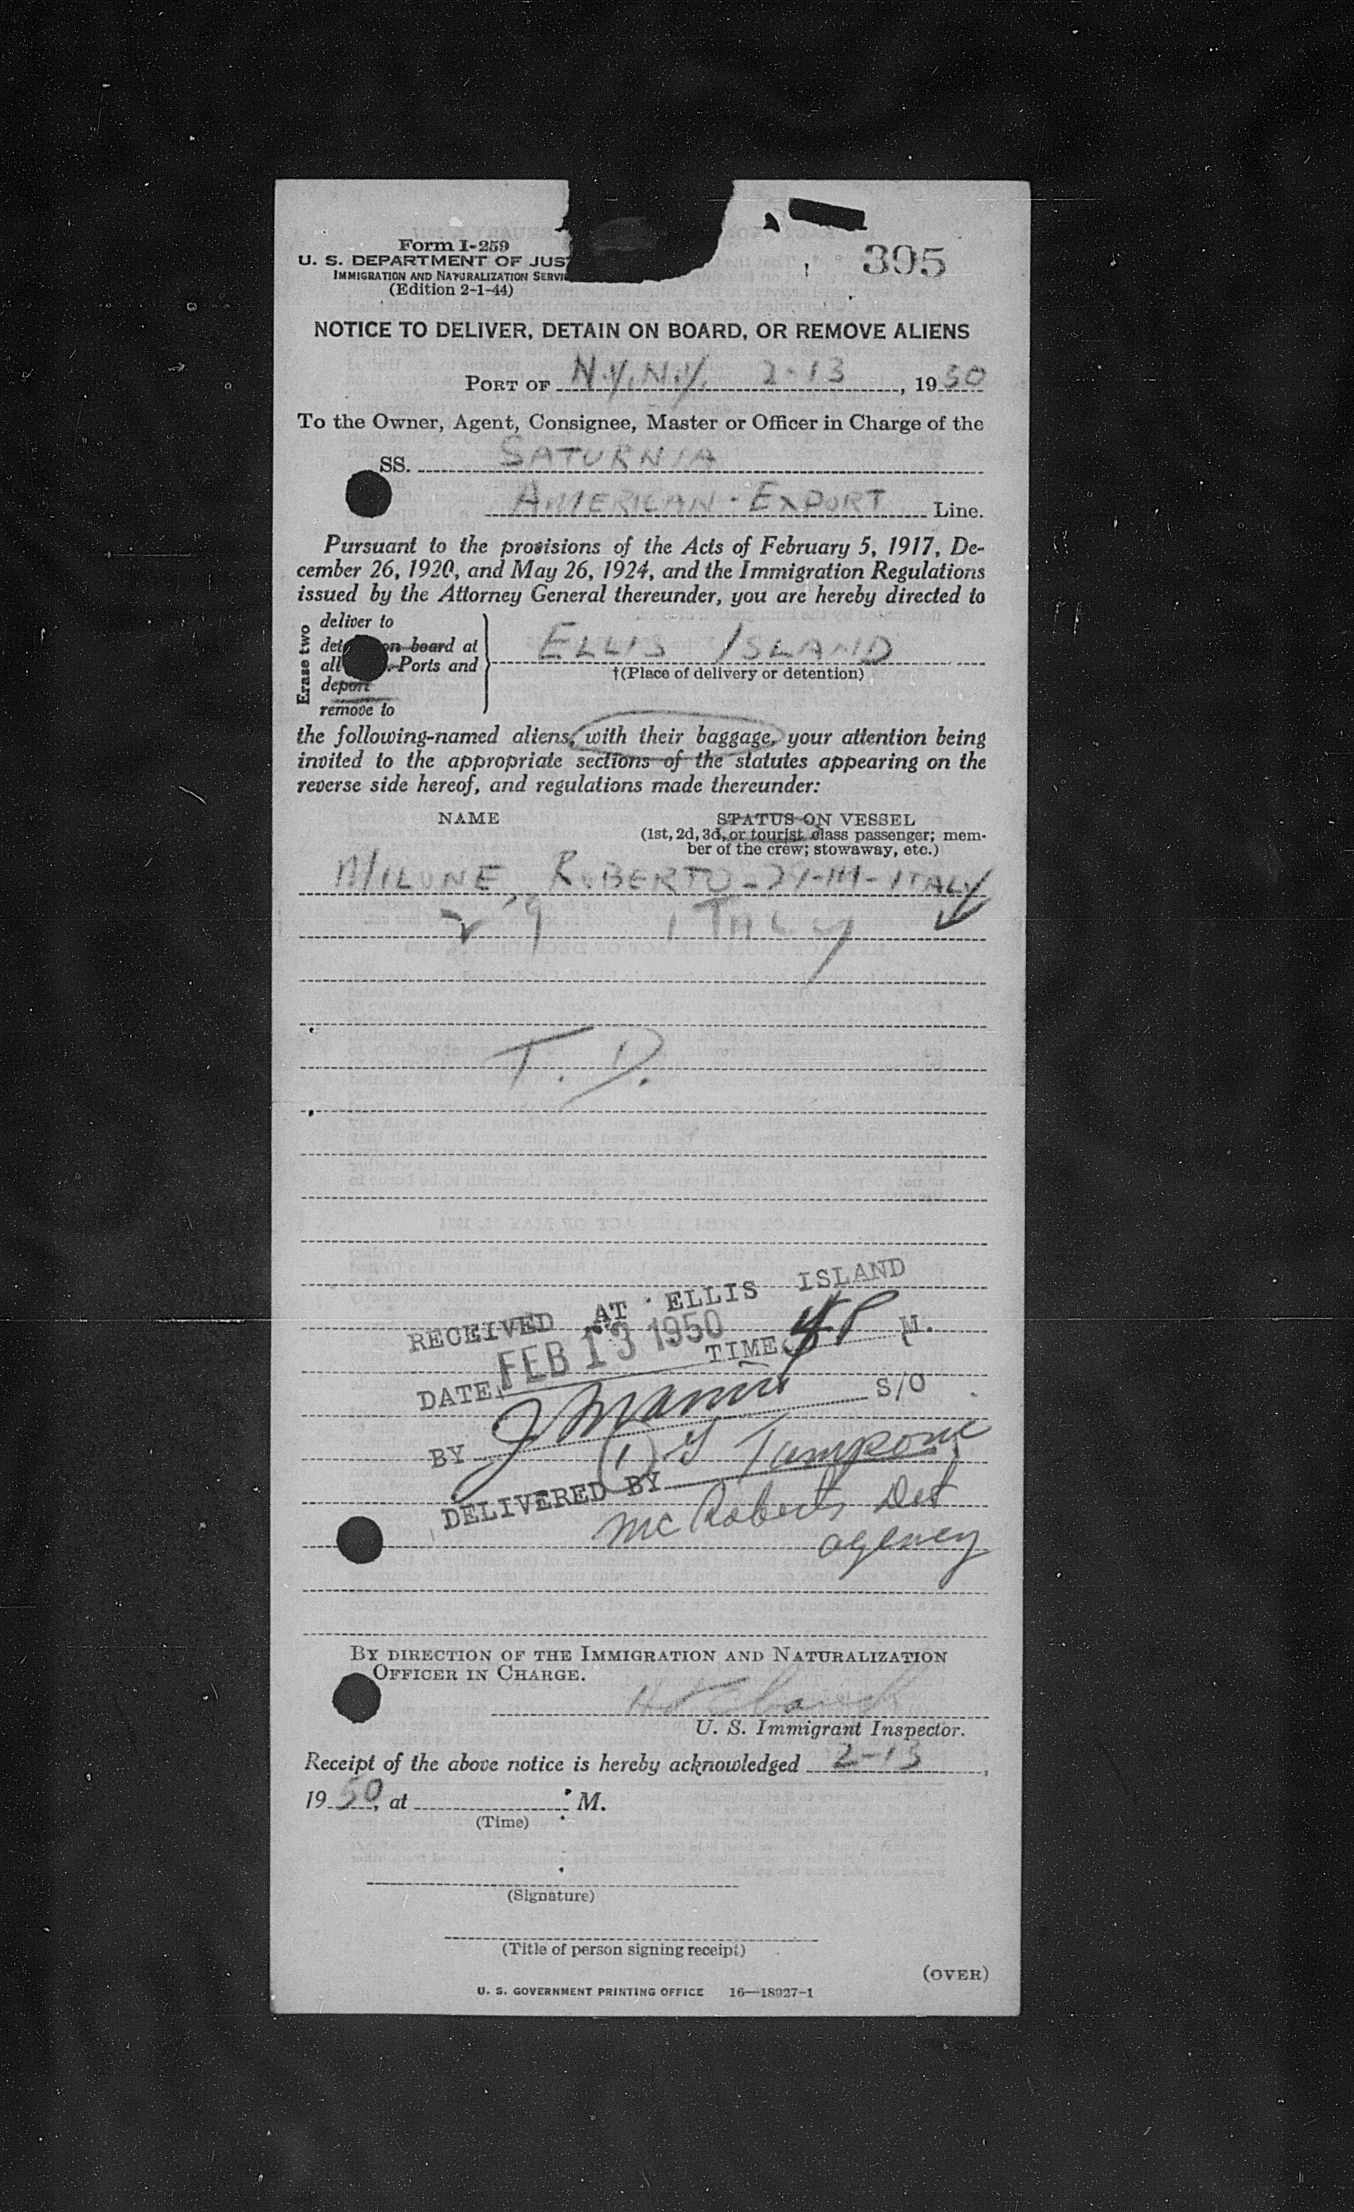 Form I-259
U. S. DEPARTMENT OF JUS
IMMIGRATION AND NATURALIZATION SERVI
(Edition 2-1-44)
395
NOTICE TO DELIVER, DETAIN ON BOARD, OR REMOVE ALIENS
PORT OF N.Y. N.Y. 2-13, 1950
To the Owner, Agent, Consignee, Master or Officer in Charge of the
SS. SATURNIA
AMERICAN-EXPORT Line.
Pursuant to the provisions of the Acts of February 5, 1917, De-
cember 26, 1920, and May 26, 1924, and the Immigration Regulations
issued by the Attorney General thereunder, you are hereby directed to
Erase two
deliver to
det on board at
all Ports and
deport
remove to
ELLIS ISLAND
†(Place of delivery or detention)
the following-named aliens, with their baggage, your attention being
invited to the appropriate sections of the statutes appearing on the
reverse side hereof, and regulations made thereunder:
NAME STATUS ON VESSEL
(1st, 2d, 3d, or tourist class passenger; mem-
ber of the crew; stowaway, etc.)
MILONE, ROBERTO-29-M-ITALY
29 ITALY
T. D.
RECEIVED AT ELLIS ISLAND
DATE FEB 13 1950 TIME 4 P M.
BY J S/O
DELIVERED BY (1) G Tampone
McRoberts Det
agency
BY DIRECTION OF THE IMMIGRATION AND NATURALIZATION
OFFICER IN CHARGE.
U. S. Immigrant Inspector.
Receipt of the above notice is hereby acknowledged 2-13,
1950, at : M.
(Time)
(Signature)
(Title of person signing receipt)
(OVER)
U. S. GOVERNMENT PRINTING OFFICE 16—18927-1